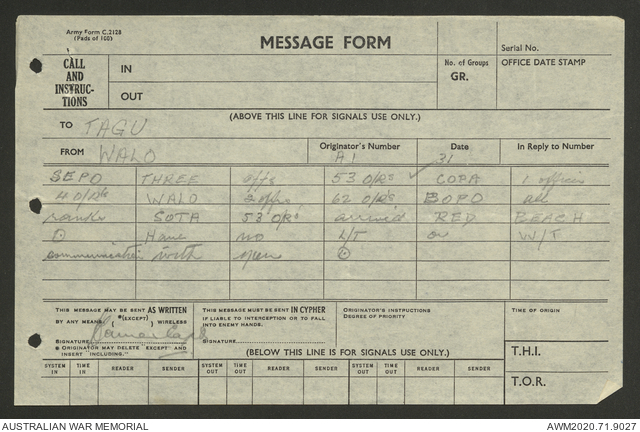 Army Form C.2128
(Pads of 100)
MESSAGE FORM
Serial No.
CALL
AND
INSTRUC-
TIONS
IN
OUT
No. of Groups
GR.
OFFICE DATE STAMP
(ABOVE THIS LINE FOR SIGNALS USE ONLY.)
TO TAGU
FROM WALO
Originator's Number
A1
Date
31
In Reply to Number
SEPO THREE offs 53 O/Rs COPA 1 officer
40/Rs WALO 2 offs 62 O/Rs BOPO all
ranks SOTA 53 O/Rs arrived RED BEACH
⊙ Have no L/T or W/T
communication with ⊙
THIS MESSAGE MAY BE SENT AS WRITTEN
BY ANY MEANS (*(EXCEPT) ) WIRELESS
Signature
* ORIGINATOR MAY DELETE "EXCEPT" AND
INSERT "INCLUDING."
THIS MESSAGE MUST BE SENT IN CYPHER
IF LIABLE TO INTERCEPTION OR TO FALL
INTO ENEMY HANDS.
SIGNATURE
ORIGINATOR'S INSTRUCTIONS
DEGREE OF PRIORITY
TIME OF ORIGIN
(BELOW THIS LINE IS FOR SIGNALS USE ONLY.)
T.H.I.
T.O.R.
SYSTEM IN TIME IN READER SENDER SYSTEM OUT TIME OUT READER SENDER SYSTEM OUT TIME OUT READER SENDER
AUSTRALIAN WAR MEMORIAL
AWM2020.71.9027